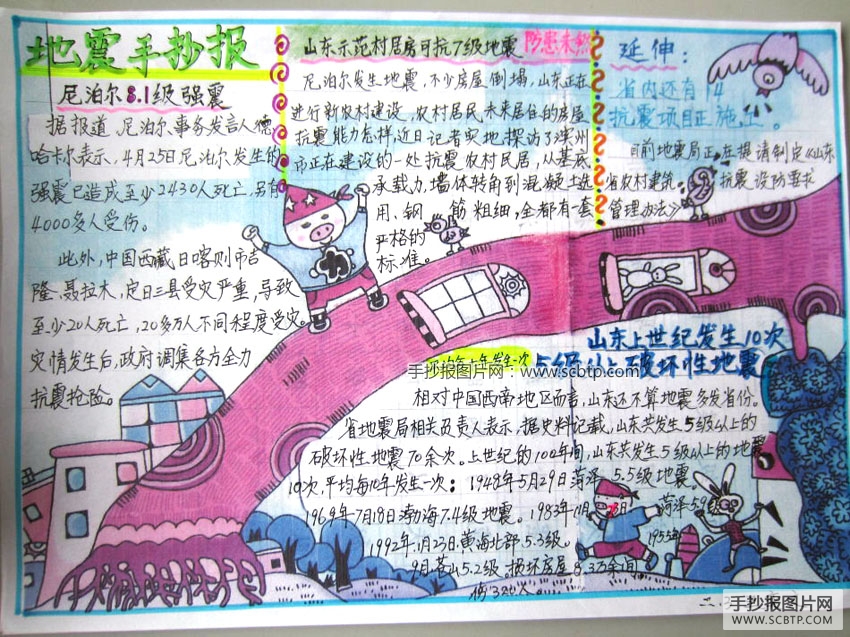 地震手抄报
尼泊尔8.1级强震
据报道,尼泊尔事务发言人德
哈卡尔表示,4月25日尼泊尔发生的
强震已造成至少2430人死亡,另有
4000多人受伤。
此外,中国西藏日喀则市吉
隆、聂拉木、定日三县受灾严重,导致
至少20人死亡,20多万人不同程度受灾。
灾情发生后,政府调集各方全力
抗震抢险。
山东示范村居房可抗7级地震 防患未然
尼泊尔发生地震,不少房屋倒塌,山东正在
进行新农村建设,农村居民未来居住的房屋
抗震能力怎样,近日记者实地探访了滨州
市正在建设的一处抗震农村民居,从基底
承载力,墙体转角到混凝土选
用、钢筋粗细,全都有一套
严格的
标准。
延伸:
省内还有14
抗震项目正施工。
目前地震局正在提请制定《山东
省农村建筑抗震设防要求
管理办法》
山东上世纪发生10次
年发生一次 5级以上破坏性地震
手抄报图片网:www.scbtp.com
相对中国西南地区而言,山东还不算地震多发省份。
省地震局相关负责人表示,据史料记载,山东共发生5级以上的
破坏性地震70余次。上世纪的100年间,山东共发生5级以上的地震
10次,平均每10年发生一次:1948年5月29日菏泽5.5级地震
1969年7月18日渤海7.4级地震。1983年11月 菏泽5.9级
1992年1月23日黄海北部5.3级。 1955年
9月苍山5.2级。损坏房屋8.3万余间
伤320人。
手抄报图片网
WWW.SCBTP.COM